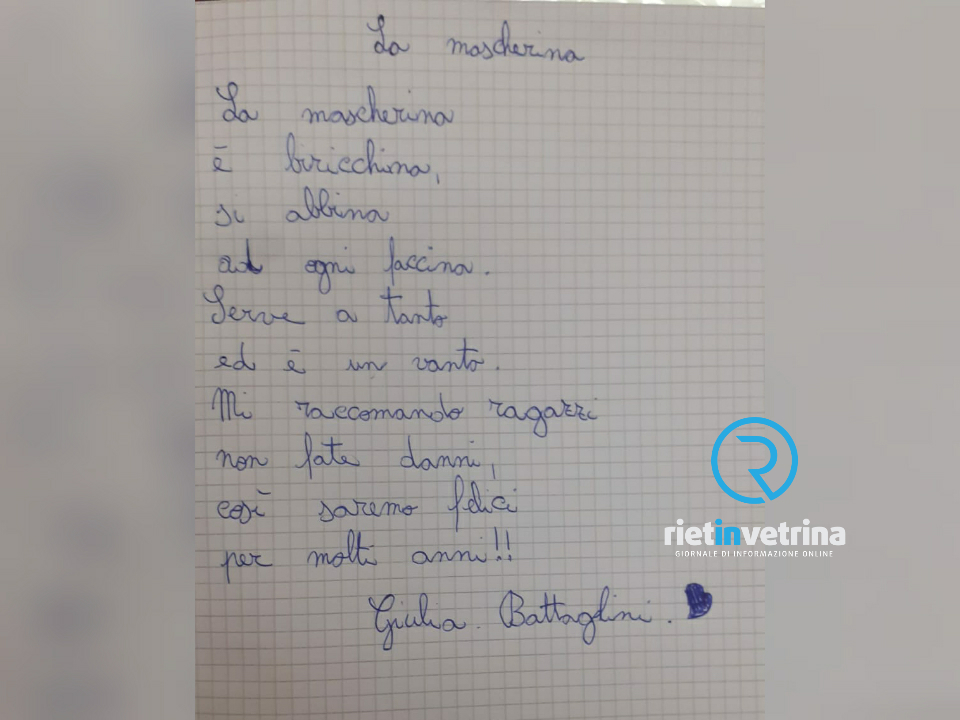 La mascherina
La mascherina
è biricchina,
si abbina
ad ogni faccina.
Serve a tanto
ed è un vanto.
Mi raccomando ragazzi
non fate danni,
così saremo felici
per molti anni!!
Giulia. Battaglini.
rietinvetrina
GIORNALE DI INFORMAZIONE ONLINE